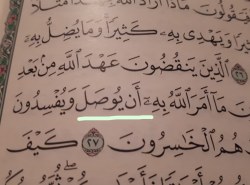 يَقُولُونَ مَاذَا أَرَادَ ٱللَّهُ
كَثِيرًا وَيَهْدِى بِهِۦ كَثِيرًا وَمَا يُضِلُّ بِهِۦٓ
٢٦ ٱلَّذِينَ يَنقُضُونَ عَهْدَ ٱللَّهِ مِنۢ بَعْدِ
مَآ أَمَرَ ٱللَّهُ بِهِۦٓ أَن يُوصَلَ وَيُفْسِدُونَ
هُمُ ٱلْخَٰسِرُونَ ٢٧ كَيْفَ